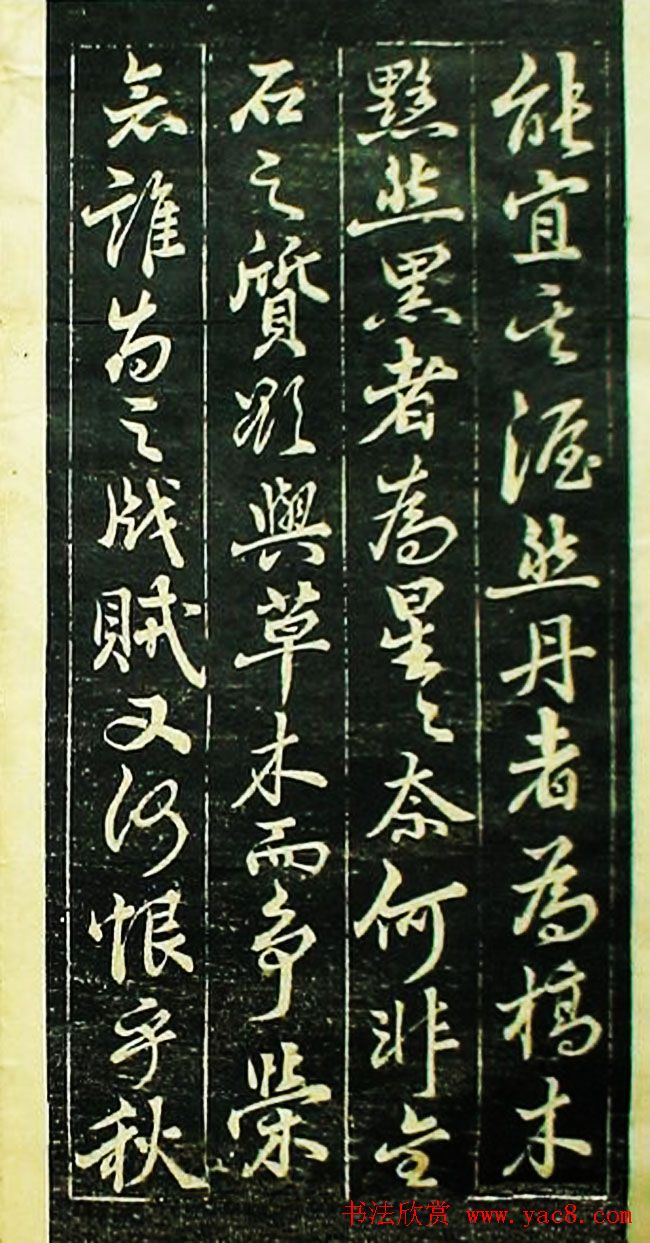 能宜其渥然丹者為槁木
黟然黑者為星〻奈何非金
石之質欲與草木而爭榮
念誰為之戕賊又何恨乎秋
书法欣赏 www.yac8.com